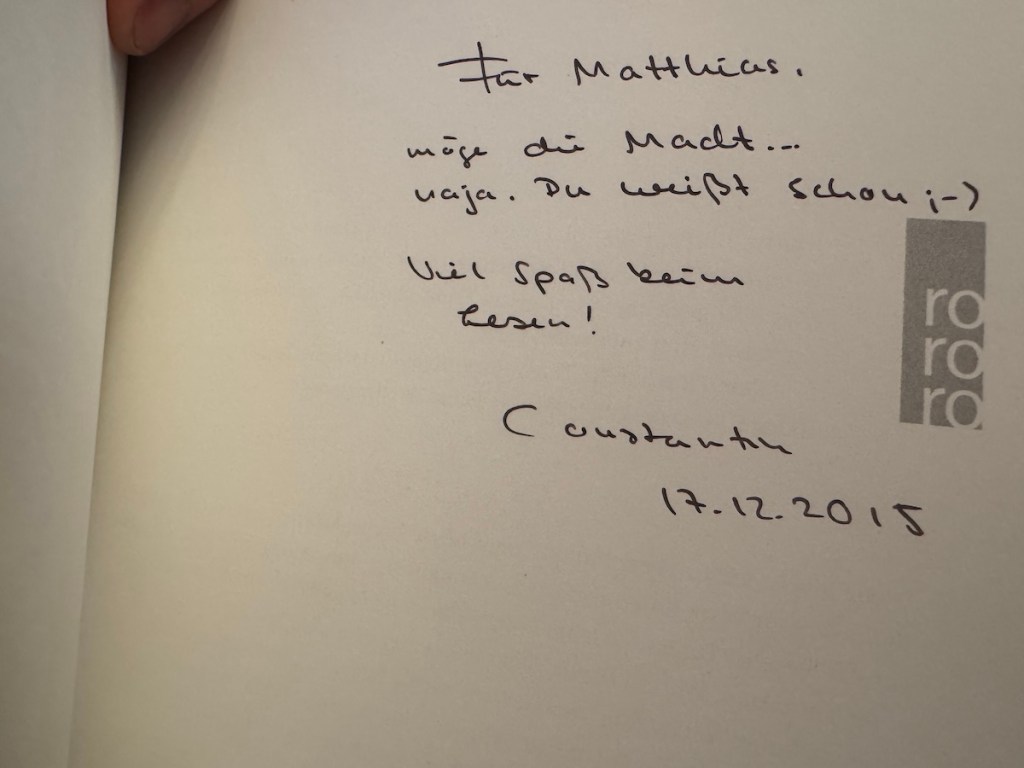 Für Matthias.
möge die Macht...
naja. Du weißt schon ;-)
Viel Spaß beim
Lesen!
ro
ro
ro
Constantin
17.12.2015